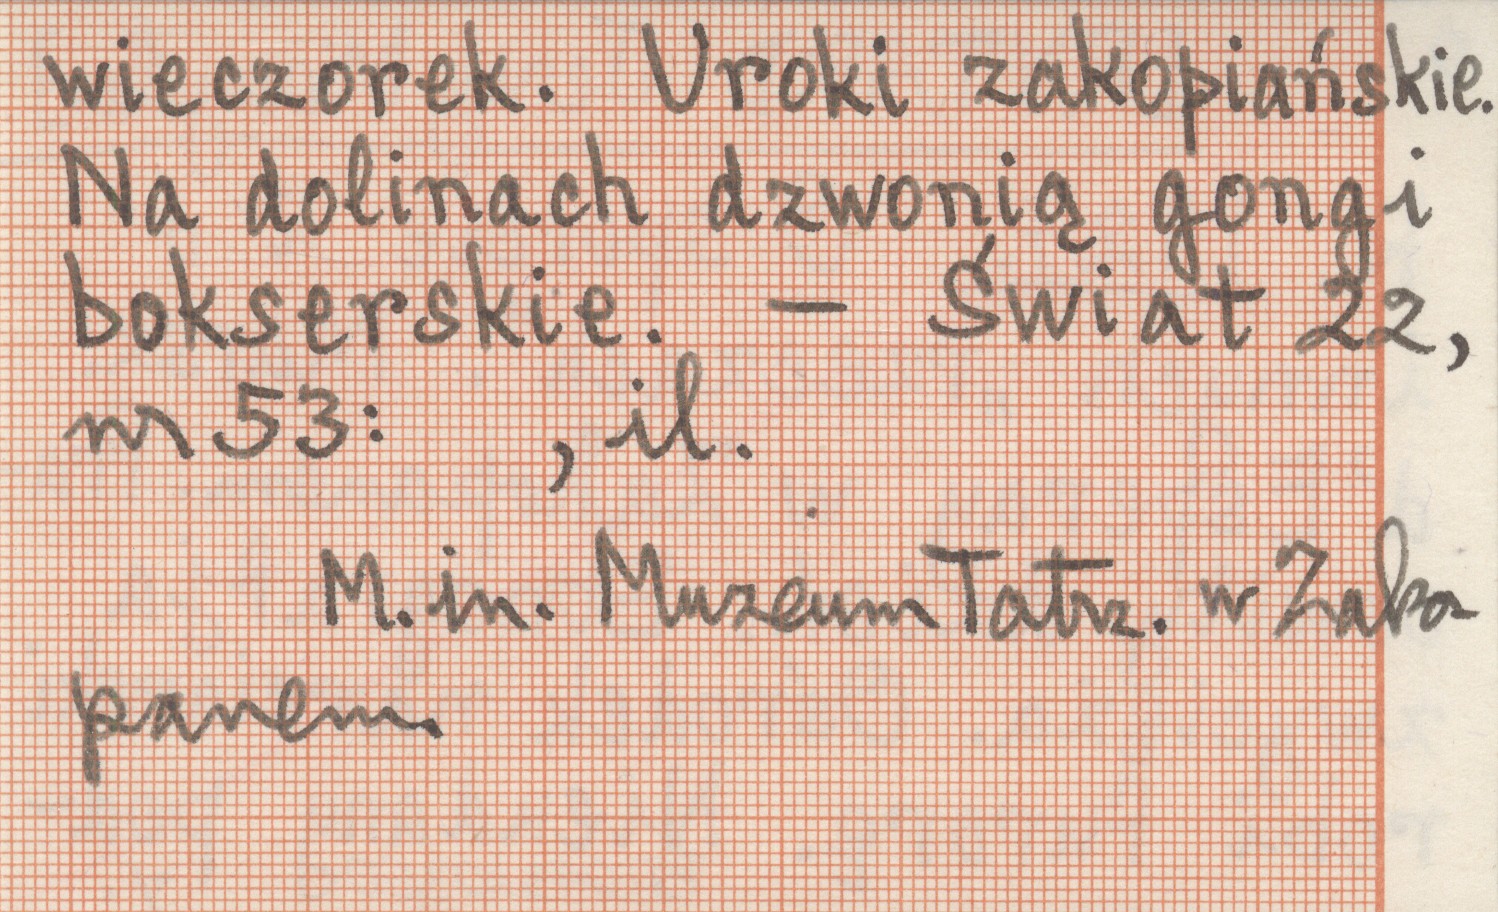 wieczorek. Uroki zakopiańskie.
Na dolinach dzwonią gongi
bokserskie. — Świat 22,
nr 53: , il.
M. in. Muzeum Tatrz. w Zako-
panem